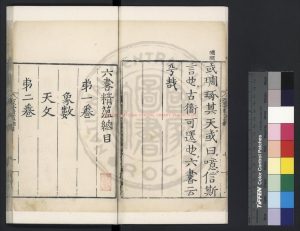 或瑪瑑其天或曰噫信斯
言也古衡可還也六書云
乎哉
六書精蘊總目
第一卷
象數
天文
第二卷